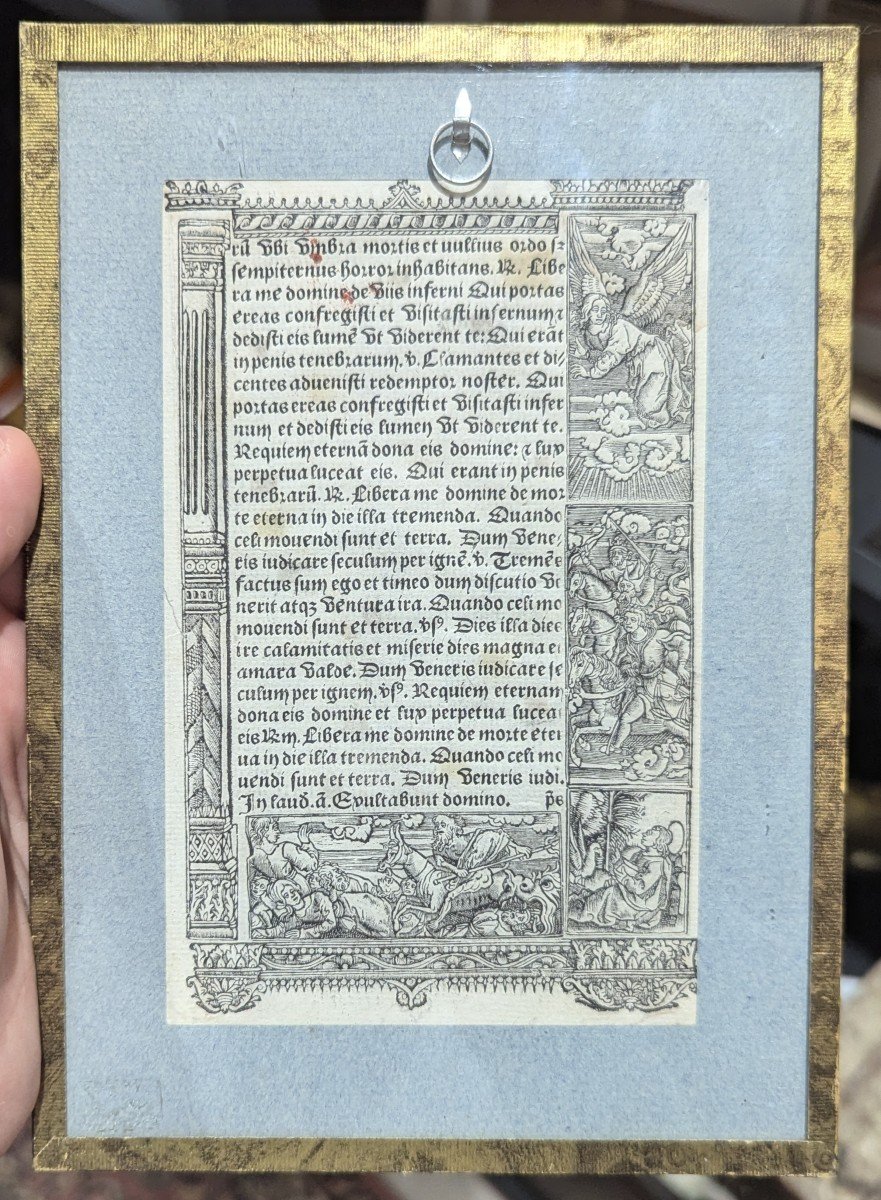 rū Vbi Vmbra mortis et nullius ordo sꝫ
sempiternus horror inhabitans. ℟. Libe
ra me domine de Viis inferni Qui portas
ereas confregisti et Visitasti infernum ⁊
dedisti eis lumē Vt Viderent te: Qui erāt
in penis tenebrarum. v. Clamantes et di⸗
centes aduenisti redemptor noster. Qui
portas ereas confregisti et Visitasti infer
num et dedisti eis lumen Vt Viderent te.
Requiem eternā dona eis domine: ⁊ lux
perpetua luceat eis. Qui erant in penis
tenebrarū. ℟. Libera me domine de mor
te eterna in die illa tremenda. Quando
celi mouendi sunt et terra. Dum Vene⸗
ris iudicare seculum per ignē. v. Tremēs
factus sum ego et timeo dum discutio Ve
nerit atqꝫ Ventura ira. Quando celi mo
mouendi sunt et terra. vſꝰ. Dies illa dies
ire calamitatis et miserie dies magna et
amara Valde. Dum Veneris iudicare se
culum per ignem. vſꝰ. Requiem eternam
dona eis domine et lux perpetua luceat
eis ℟m. Libera me domine de morte eter
na in die illa tremenda. Quando celi mo
uendi sunt et terra. Dum Veneris iudi.
In laud. ā. Exultabunt domino. p̄s